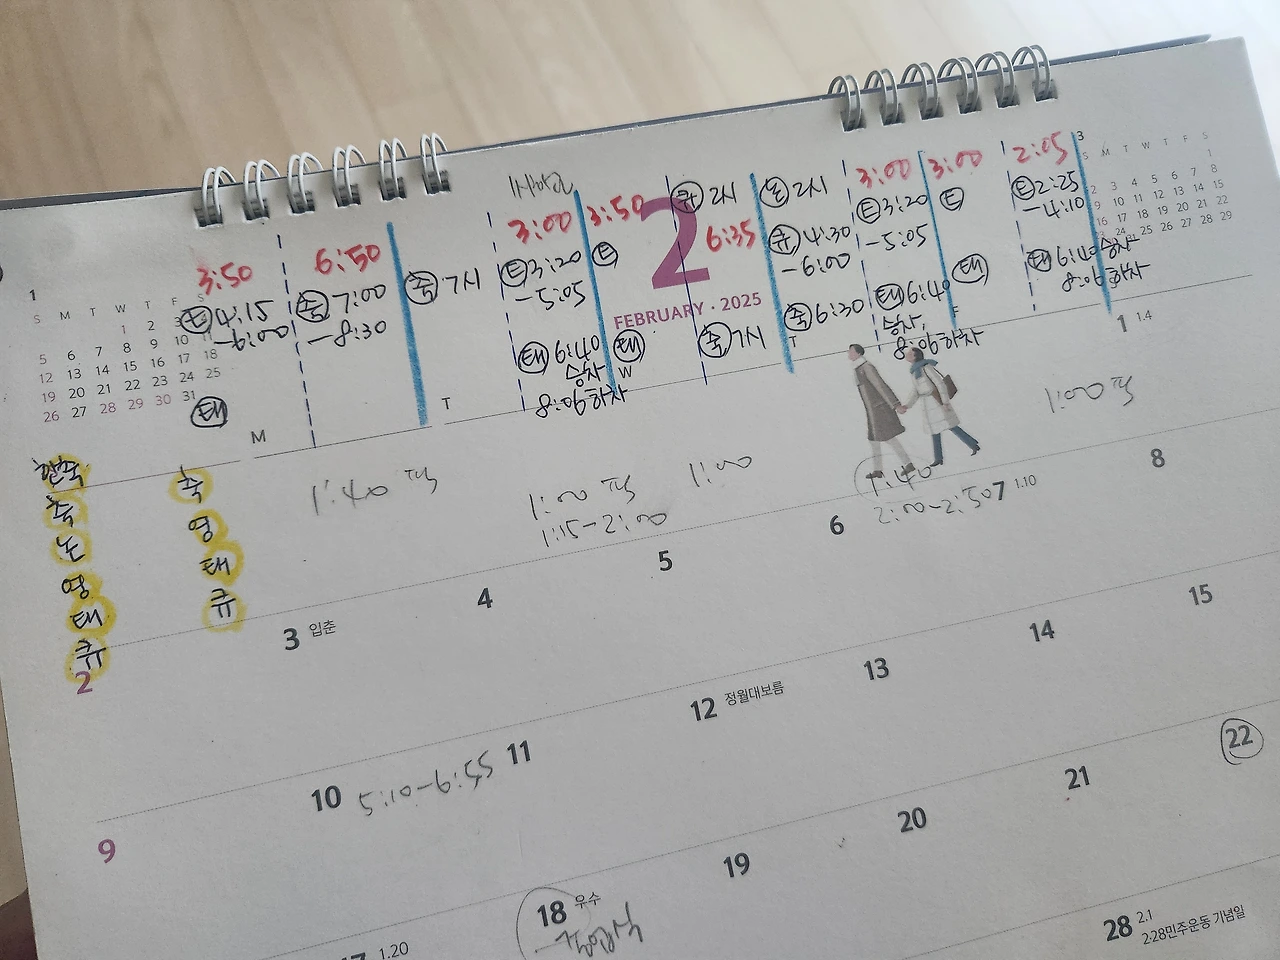 1
S M T W T F S
1 2 3 4
5 6 7 8 9 10 11
12 13 14 15 16 17 18
19 20 21 22 23 24 25
26 27 28 29 30 31
3:50
토 4:15
-6:00
태
6:50
축 7:00
-8:30
축 7시
3:00
토 3:20
-5:05
태 6:40
승차
8:06 하차
3:50
토
태
2
FEBRUARY · 2025
큐 2시
6:35
축 7시
논 2시
큐 4:30
-6:00
축 6:30
3:00
토 3:20
-5:05
태 6:40
승차,
8:06 하차
3:00
토
태
2:05
토 2:25
-4:10
태 6:40 승차
8:06 하차
3
S M T W T F S
1
2 3 4 5 6 7 8
9 10 11 12 13 14 15
16 17 18 19 20 21 22
23 24 25 26 27 28 29
M T W T F
1 1.4
1:00
축
논
영
태
큐
축
영
태
큐
1:40
1:00
1:15-2:00
1:00
1:40
2:00-2:50
2
3 입춘
4
5
6
7 1.10
8
9
10 5:10-6:55
11
12 정월대보름
13
14
15
17 1.20
18 우수
19
20
21
22
28 2.1
2·28민주운동 기념일